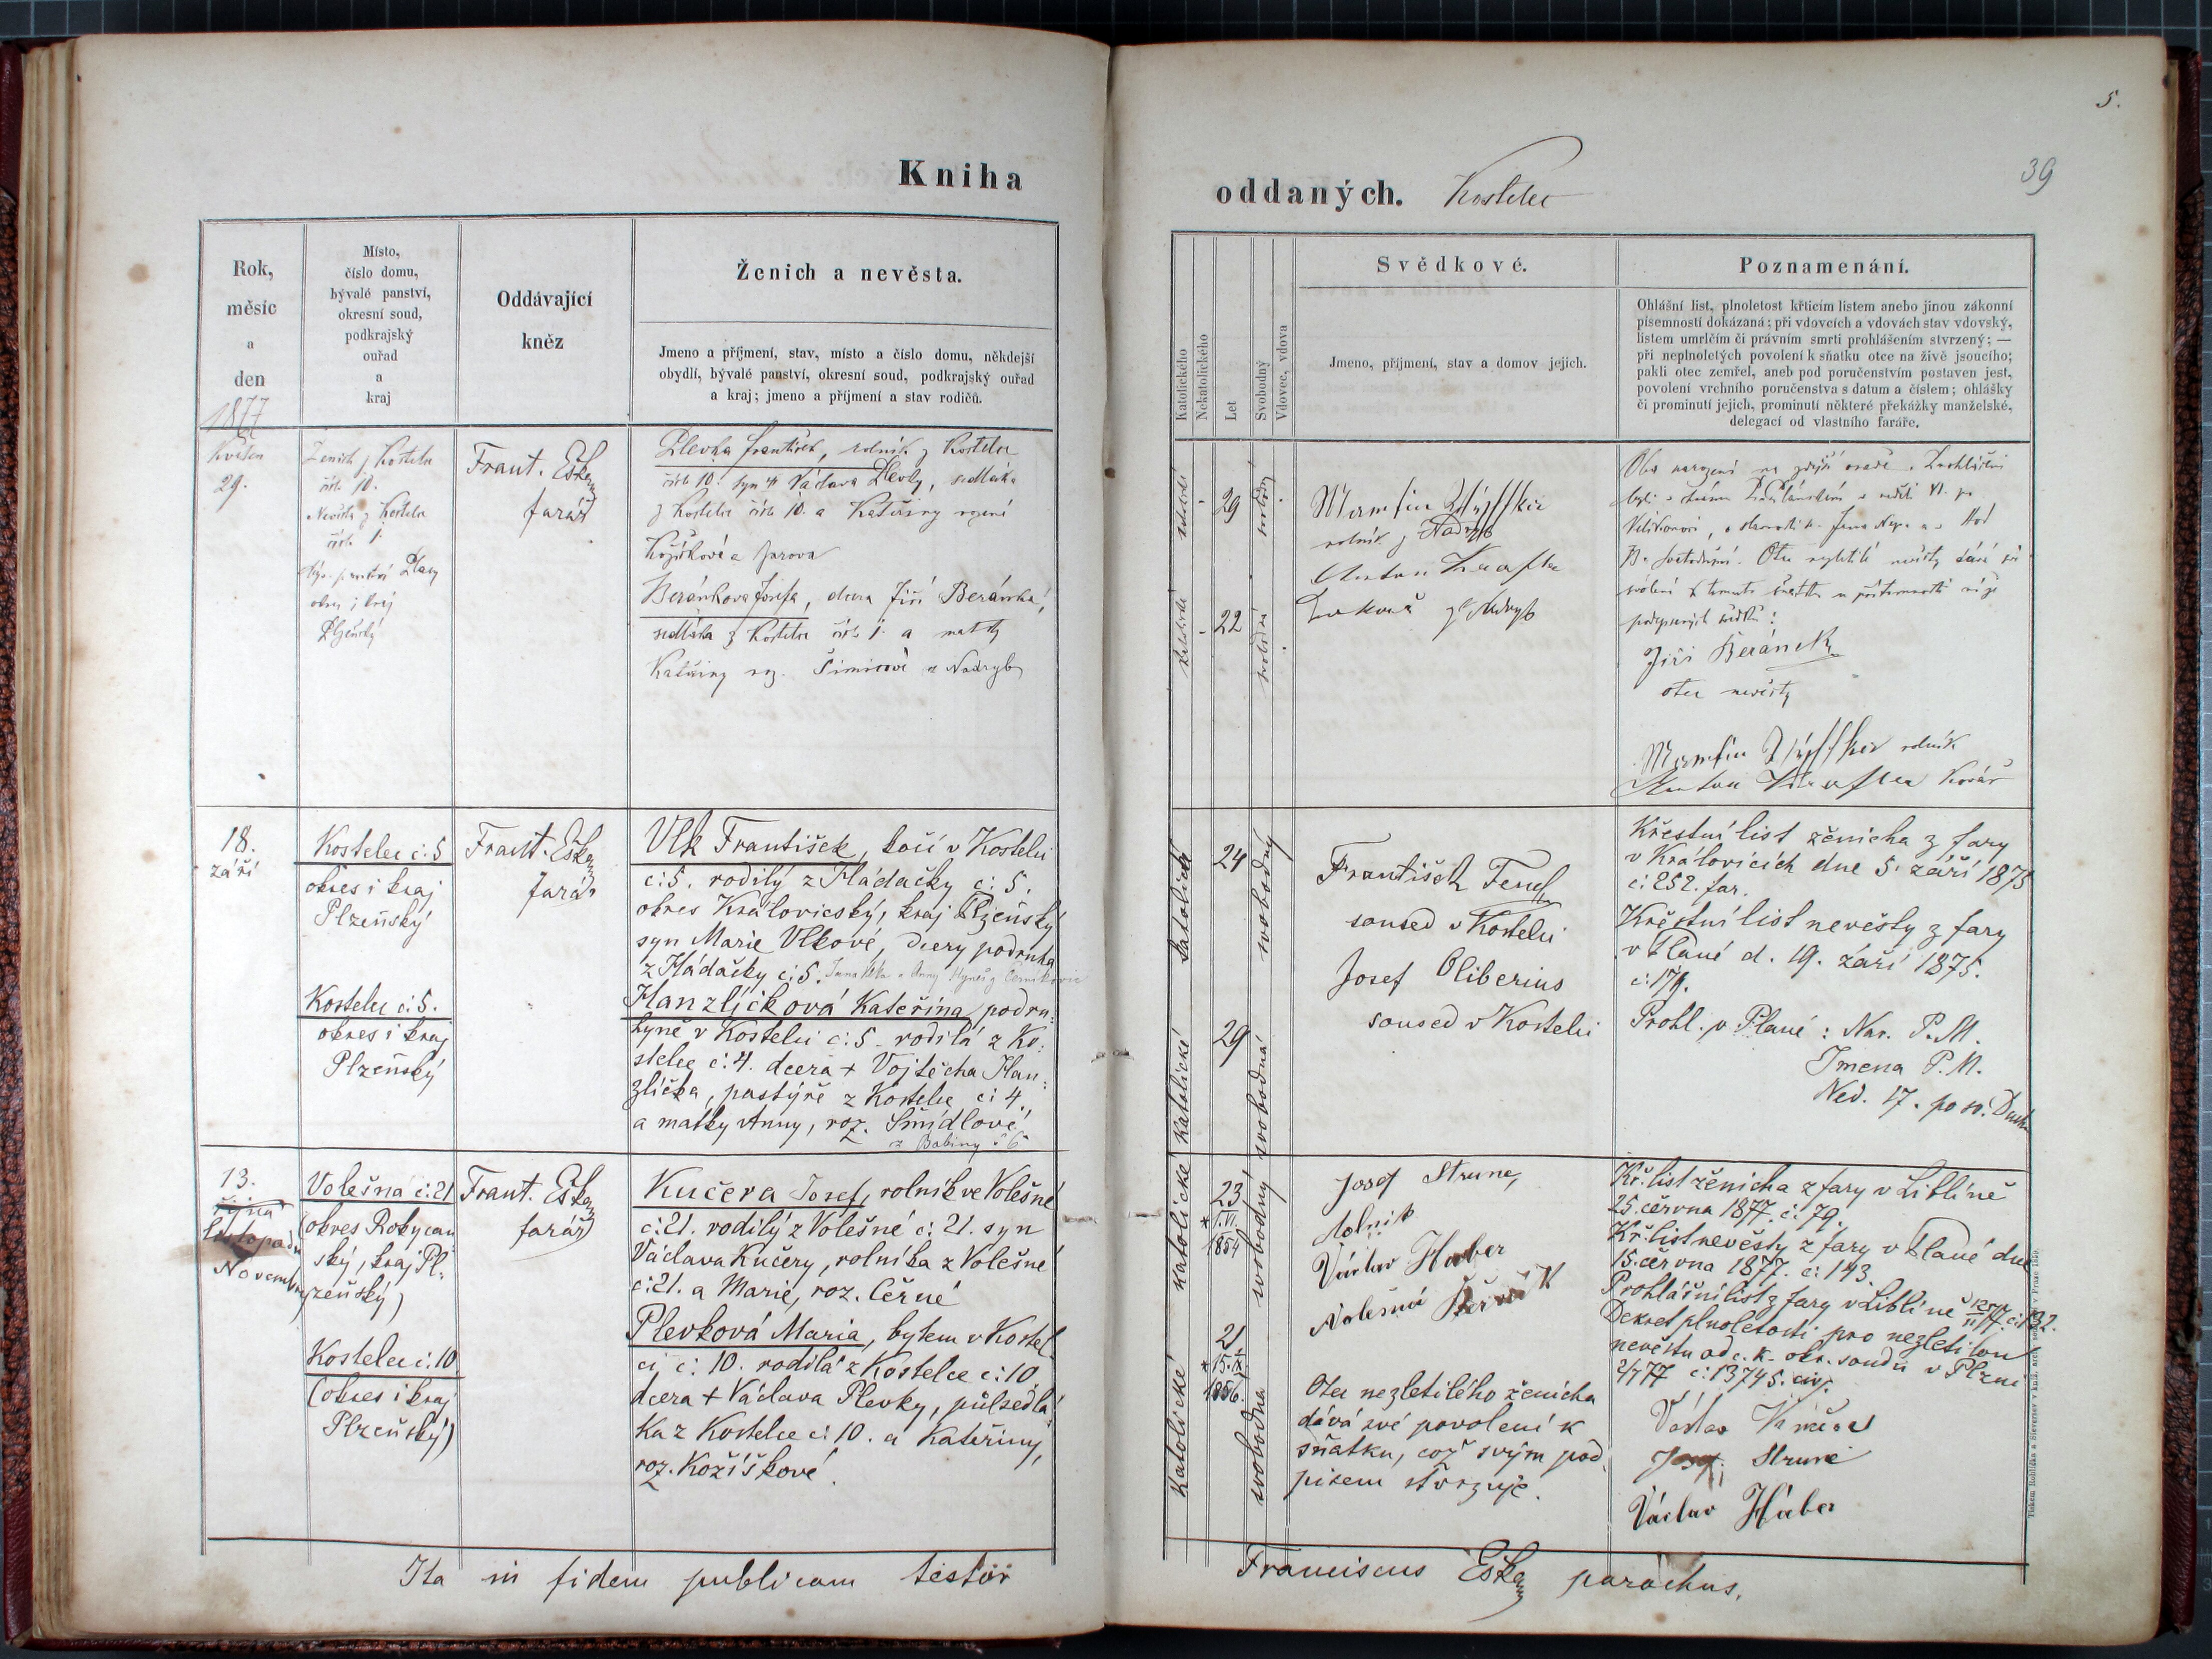 5.
39
Kniha
oddaných. Kostelec
Rok,
měsíc
a
den
1877
Místo,
číslo domu,
bývalé panství,
okresní soud,
podkrajský
ouřad
a
kraj
Oddávající
kněz
Ženich a nevěsta.
Jmeno a příjmení, stav, místo a číslo domu, někdejší
obydlí, bývalé panství, okresní soud, podkrajský ouřad
a kraj; jmeno a příjmení a stav rodičů.
Katolického
Nekatolického
Let
Svobodný
Vdovec, vdova
Svědkové.
Jmeno, příjmení, stav a domov jejich.
Poznamenání.
Ohlášní list, plnoletost křticím listem anebo jinou zákonní
písemností dokázaná; při vdovcích a vdovách stav vdovský,
listem umrlčím či právním smrti prohlášením stvrzený; —
při neplnoletých povolení k sňatku otce na živě jsoucího;
pakli otec zemřel, aneb pod poručenstvím postaven jest,
povolení vrchního poručenstva s datum a číslem; ohlášky
či prominutí jejich, prominutí některé překážky manželské,
delegací od vlastního faráře.
Květen
29.
Ženich z Kostelce
čísl. 10.
Nevěsta z Kostelce
čísl. 1.
býv. panství Plasy
okres i kraj
Plzeňský
Frant. Eška
farář
Plevka František, rolník z Kostelce
čísl. 10. syn Václava Plevky, sedláka
z Kostelce čísl. 10. a Kateřiny rozené
Kožíškové z Jarova
Beránkova Josefa, dcera Jiří Beránka,
sedláka z Kostelce čísl. 1. a matky
Kateřiny roz. Šimicové z Nadryb
29
22
Martin
rolník z Nadryb
Anton
z Nadryb
Oba narozeni na zdejší osadě.
Jiří Beránek
otec nevěsty
Martin rolník
Anton kovář
18.
září
Kostelec č: 5
okres i kraj
Plzeňský
Kostelec č: 5.
okres i kraj
Plzeňský
Frant. Eška
farář
Vlk František, kočí v Kostelci
č: 5. rodilý z Hádačky č: 5.
okres Královický, kraj Plzeňský
syn Marie Vlkové, dcery podruha
z Hádačky č: 5.
Hanzlíčková Kateřina, podru:
hyně v Kostelci č: 5 - rodilá z Ko:
stelce č: 4. dcera + Vojtěcha Han:
zlíčka, pastýře z Kostelce č: 4.,
a matky Anny, roz. Šmídlové
z Babiny č 6
katolické
24
svobodný
katolické
29
svobodná
František Tencl
soused v Kostelci
Josef Oliberius
soused v Kostelci
Křestní list ženicha z fary
v Královicích dne 5. září 1875
č: 252. far.
Křestní list nevěsty z fary
v Plané d. 19. září 1875.
č: 179.
Prohl. v Plané: Nar. P. M.
Jmena P. M.
Ned. 17. po sv. Duchu
13.
října
listopadu
Novembr
Volešná č: 21
(okres Rokycan
ský, kraj Pl:
zeňský)
Kostelec č: 10
(okres i kraj
Plzeňský)
Frant. Eška
farář
Kučera Josef, rolník ve Volešné
č: 21. rodilý z Volešné č: 21. syn
Václava Kučery, rolníka z Volešné
č: 21. a Marie, roz. Černé
Plevková Maria, bytem v Kostel
ci č: 10. rodilá z Kostelce č: 10.
dcera + Václava Plevky, půlsedlá
ka z Kostelce č: 10. a Kateřiny,
roz. Kožíškové.
katolické
23
* 1. VI.
1854
svobodný
katolické
21
* 15. IX.
1856.
svobodna
Josef Strune,
Václav Haber
Volešná
Otec nezletilého ženicha
dává své povolení k
sňatku, což svým pod
pisem stvrzuje.
Kř. list ženicha z fary v Liblíně
25. června 1877. č: 79.
Kř. list nevěsty z fary v Plané dne
15. června 1877. č: 143.
Prohlášní list z fary v Liblíně
Dekret plnoletosti pro nezletilou
nevěstu od c. k. okr. soudu v Plzni
2/7 77 č: 13745. civ.
Václav Kučera
Josef Strune
Václav Háber
Ita in fidem publicam testor
Franciscus Eška parochus.